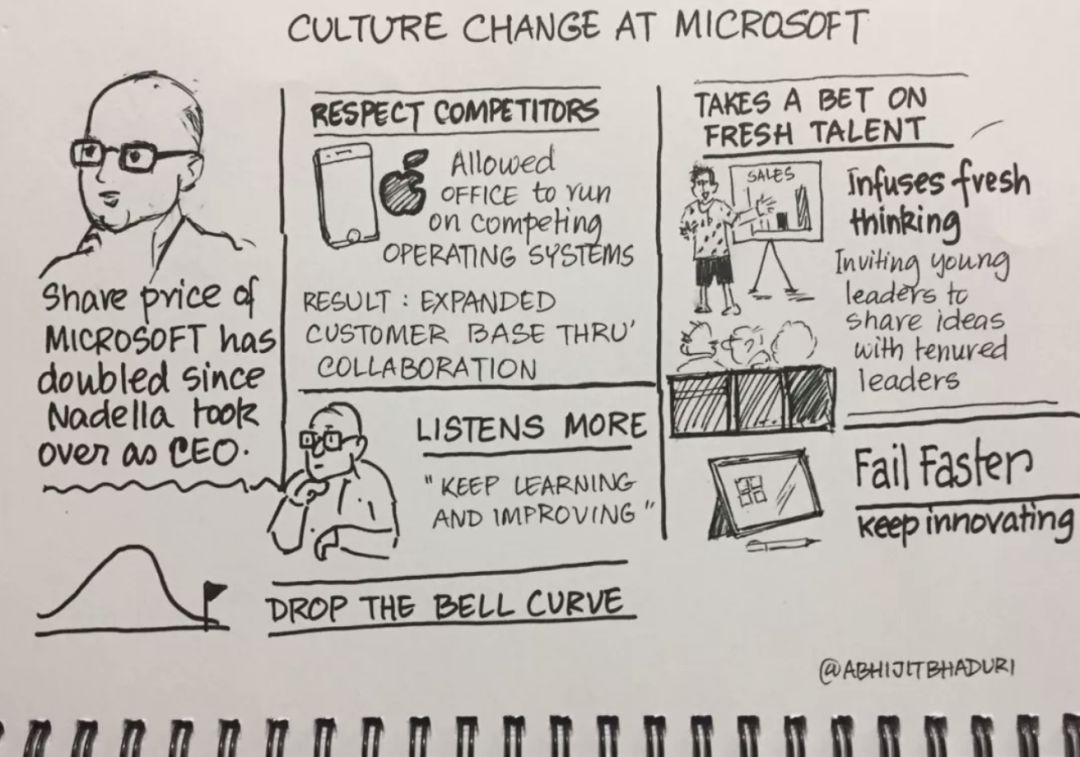 CULTURE CHANGE AT MICROSOFT
Share price of
MICROSOFT has
doubled since
Nadella took
over as CEO.
RESPECT COMPETITORS
Allowed
OFFICE to run
on competing
OPERATING SYSTEMS
RESULT : EXPANDED
CUSTOMER BASE THRU'
COLLABORATION
LISTENS MORE
"KEEP LEARNING
AND IMPROVING"
TAKES A BET ON
FRESH TALENT
SALES
Infuses fresh
thinking
Inviting young
leaders to
share ideas
with tenured
leaders
Fail Faster
keep innovating
DROP THE BELL CURVE
@ABHIJITBHADURI